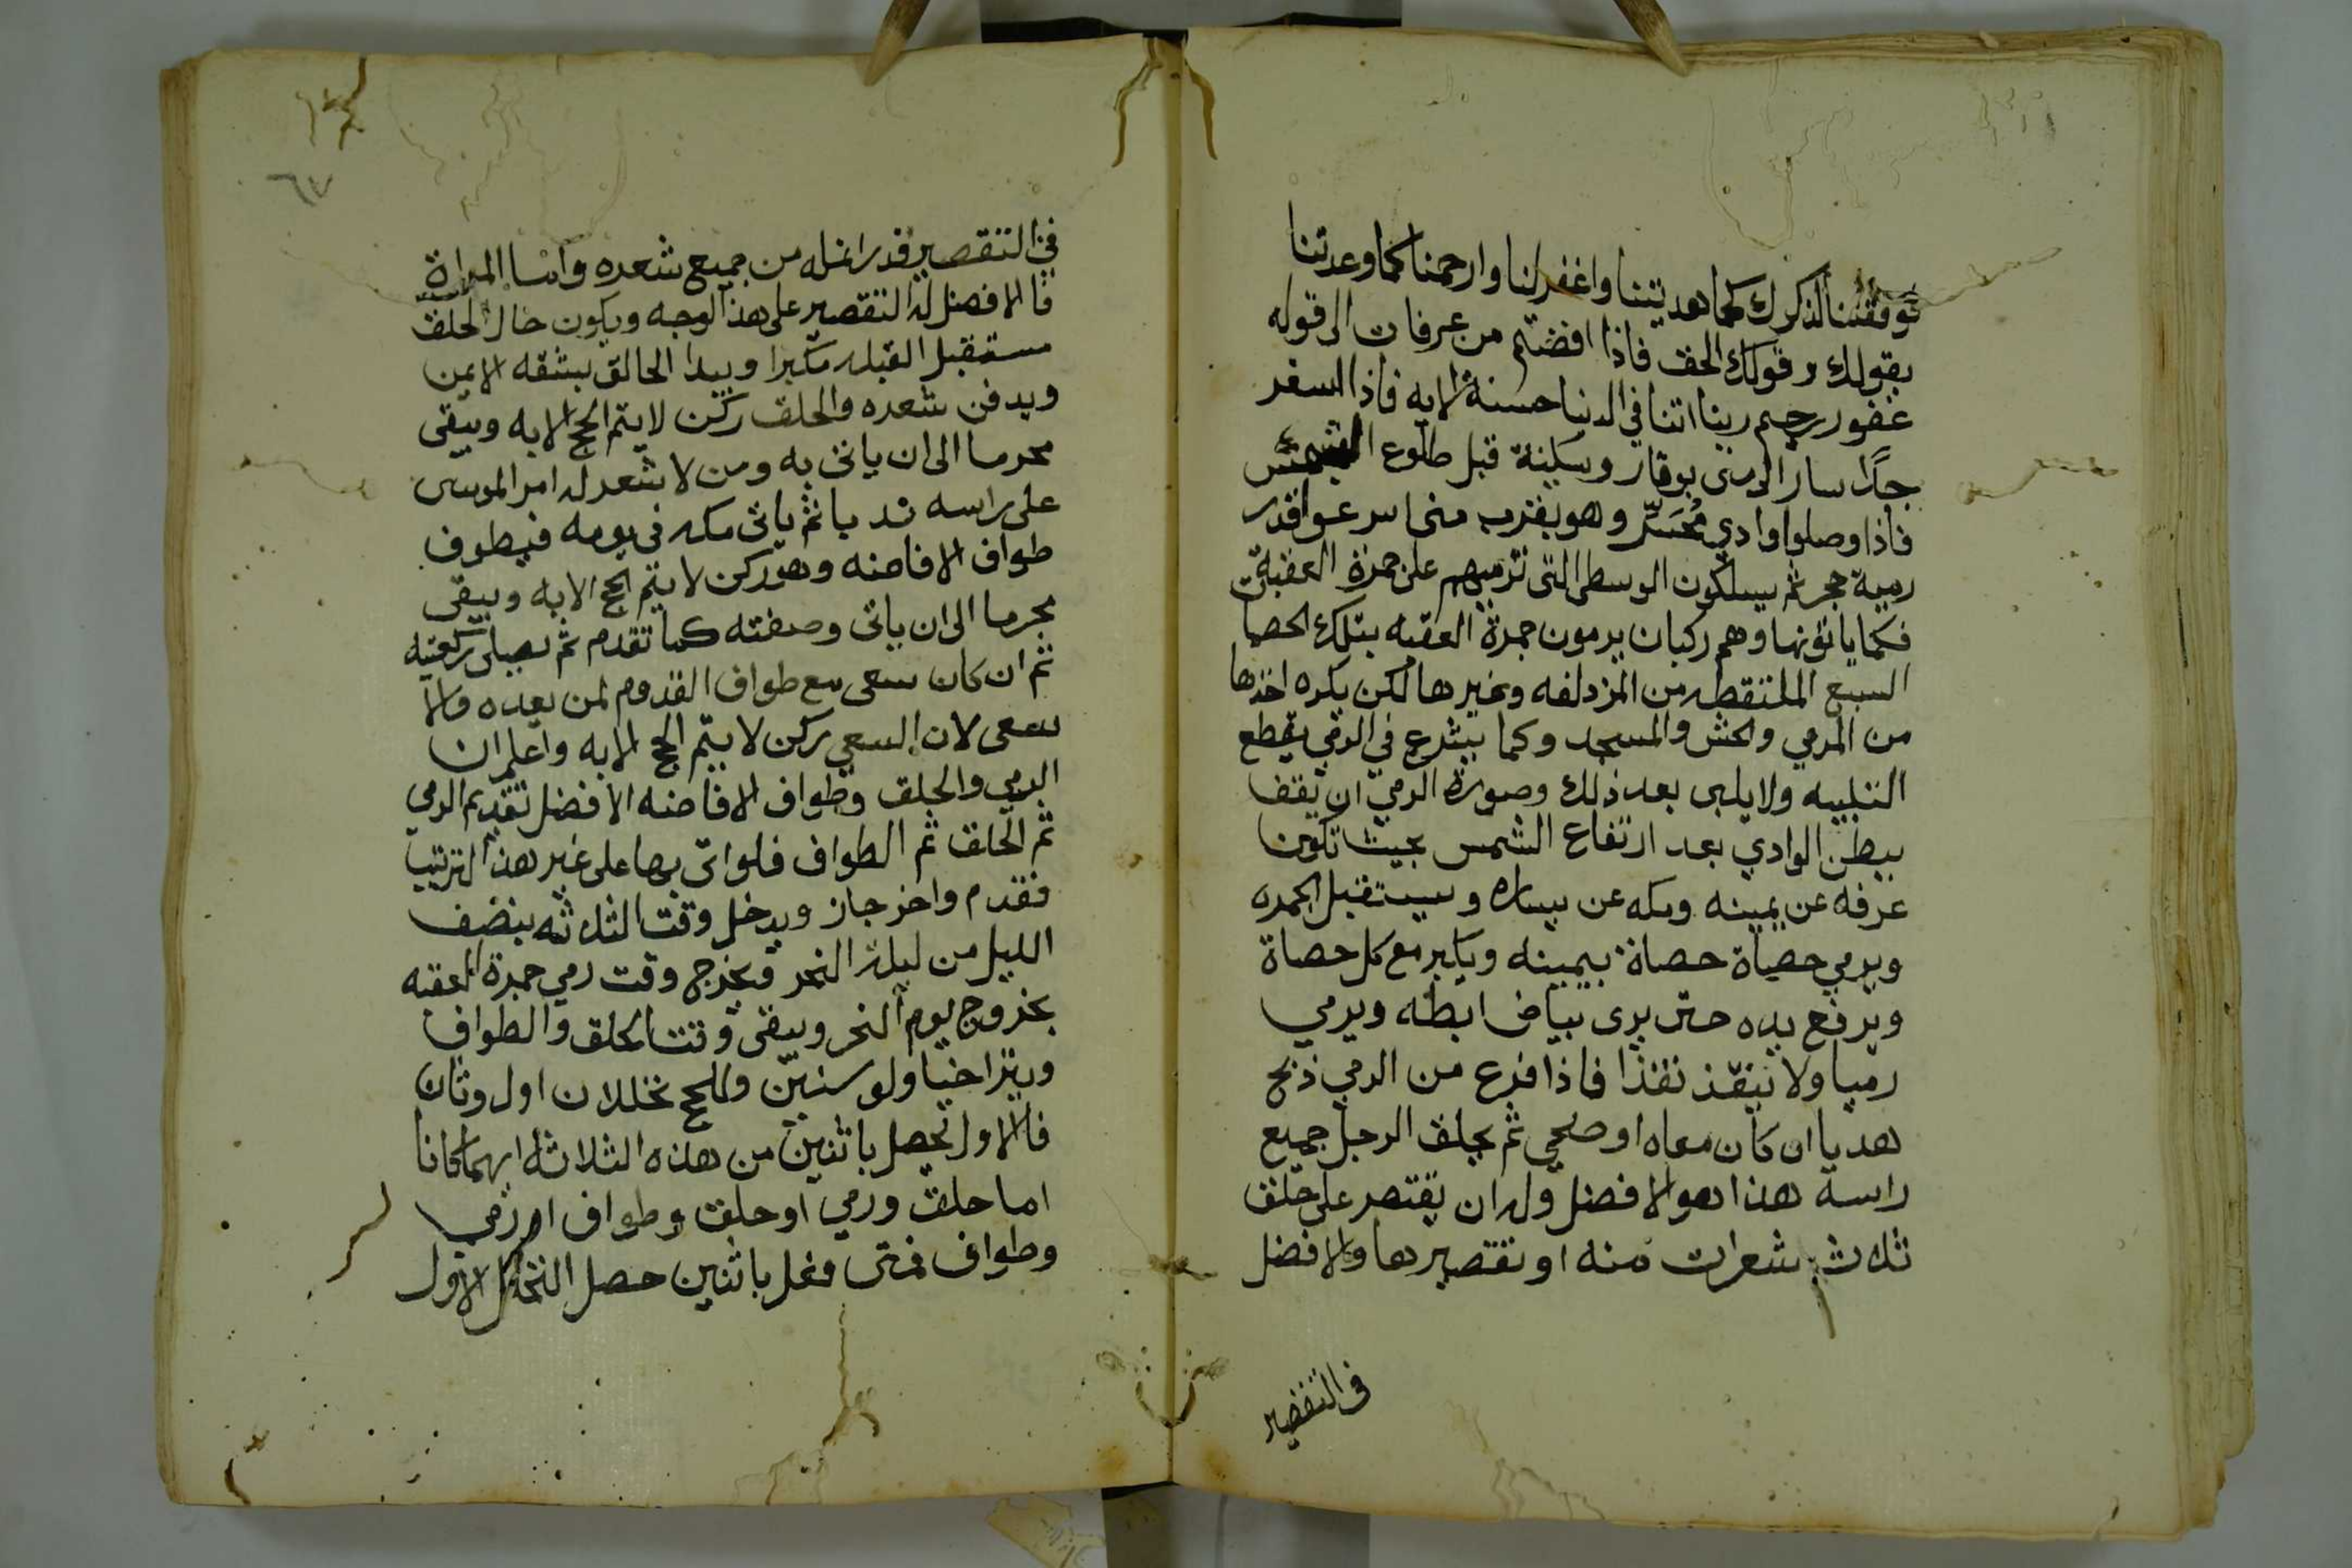 فوفقنا لذكرك كما هديتنا واغفر لنا وارحمنا كما وعدتنا
بقولك وقولك الحق فاذا افضتم من عرفات الى قوله
غفور رحيم ربنا اتنا في الدنيا حسنة الايه فاذا اسفر
جدًا سار الى منى بوقار وسكينة قبل طلوع الشمس
فاذا وصلوا وادي مُحَسِّر وهو بقرب منى اسرعوا قدر
رمية حجر ثم يسلكون الوسطى التى ترميهم على جمرة العقبة
فكما ياتونها وهم ركبان يرمون جمرة العقبه بتلك الحصا
السبع الملتقطه من المزدلفه وغيرها لكن يكره اخذها
من المرمي والحش والمسجد وكما يشرع في الرمي يقطع
التلبيه ولا يلبى بعد ذلك وصورة الرمي ان يقف
ببطن الوادي بعد ارتفاع الشمس بحيث تكون
عرفه عن يمينه ومكه عن يساره ويستقبل الجمره
ويرمي حصاة حصاة بيمينه ويكبر مع كل حصاة
ويرفع يده حتى يرى بياض ابطه ويرمي
رميا ولا ينقذ نقذا فاذا فرغ من الرمي ذبح
هديا ان كان معاه او ضحى ثم يحلق الرجل جميع
راسه هذا هو الافضل وله ان يقتصر على حلق
ثلاث شعرات منه او تقصيرها والافضل
في التقصير
٦٧
في التقصير قدر انمله من جميع شعره واما المراة
فالافضل لها التقصير على هذا الوجه ويكون حال الحلق
مستقبل القبله مكبرا ويبدا الحالق بشقه الايمن
ويدفن شعره والحلق ركن لا يتم الحج الا به ويبقى
محرما الى ان ياتى به ومن لا شعر له امر الموسى
على راسه ندبا ثم ياتى مكه فى يومه فيطوف
طواف الافاضه وهو ركن لا يتم الحج الا به ويبقى
محرما الى ان ياتى وصفته كما تقدم ثم يصلى ركعتيه
ثم ان كان سعى مع طواف القدوم لمن يعده والا
سعى لان السعي ركن لا يتم الحج الا به واعلم ان
الرمي والحلق وطواف الافاضه الافضل تقديم الرمي
ثم الحلق ثم الطواف فلو اتى بها على غير هذا الترتيب
فقدم واخر جاز ويدخل وقت الثلاثه بنصف
الليل من ليلة النحر فيخرج وقت رمي جمرة العقبه
بخروج يوم النحر ويبقى وقت الحلق والطواف
ويتراخيا ولو سنين وللحج تحللان اول وثان
فالاول يحصل باثنين من هذه الثلاثه ايهما كانا
اما حلق ورمي او حلق وطواف او رمي
وطواف فمتى فعل باثنين حصل التحلل الاول